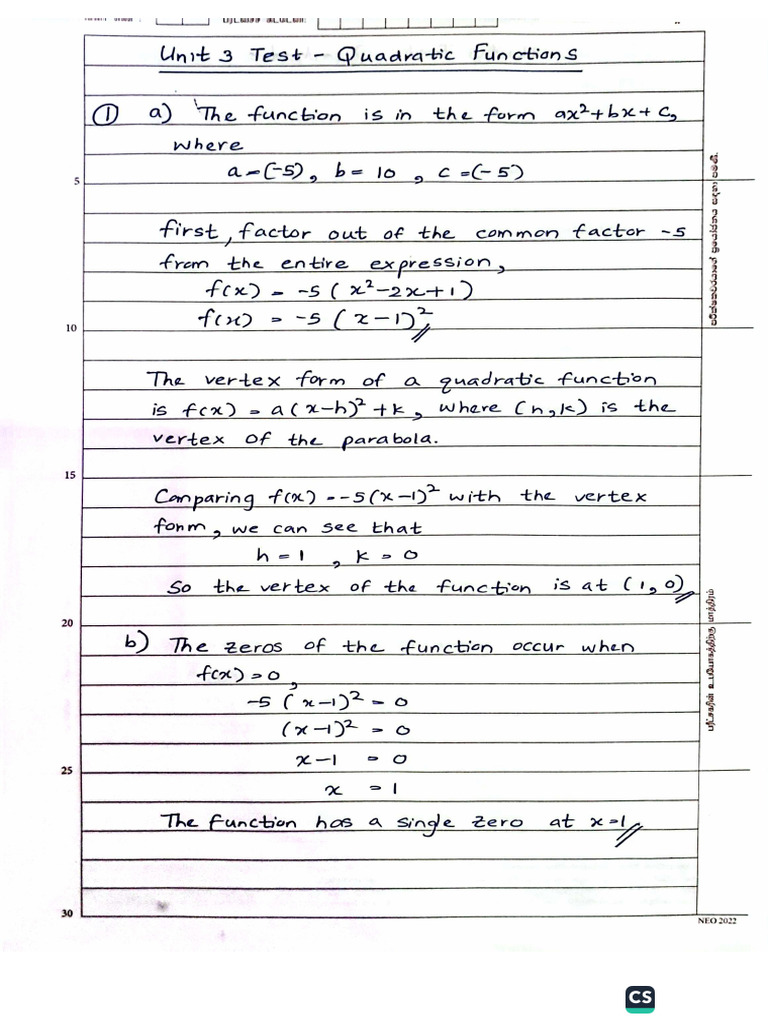 Unit 3 Test - Quadratic Functions
① a) The function is in the form ax²+bx+c,
where
a=(-5), b= 10 , c =(-5)
5
first, factor out of the common factor -5
from the entire expression,
f(x) = -5 ( x²-2x+1)
f(x) = -5 ( x-1)²
10
The vertex form of a quadratic function
is f(x) = a(x-h)² + k, where (h,k) is the
vertex of the parabola.
15
Comparing f(x) = -5(x-1)² with the vertex
form, we can see that
h = 1 , k = 0
So the vertex of the function is at (1,0)
20
b) The zeros of the function occur when
f(x) = 0,
-5 ( x-1)² = 0
(x-1)² = 0
x-1 = 0
25
x = 1
The function has a single zero at x=1
30
NEO 2022
CS